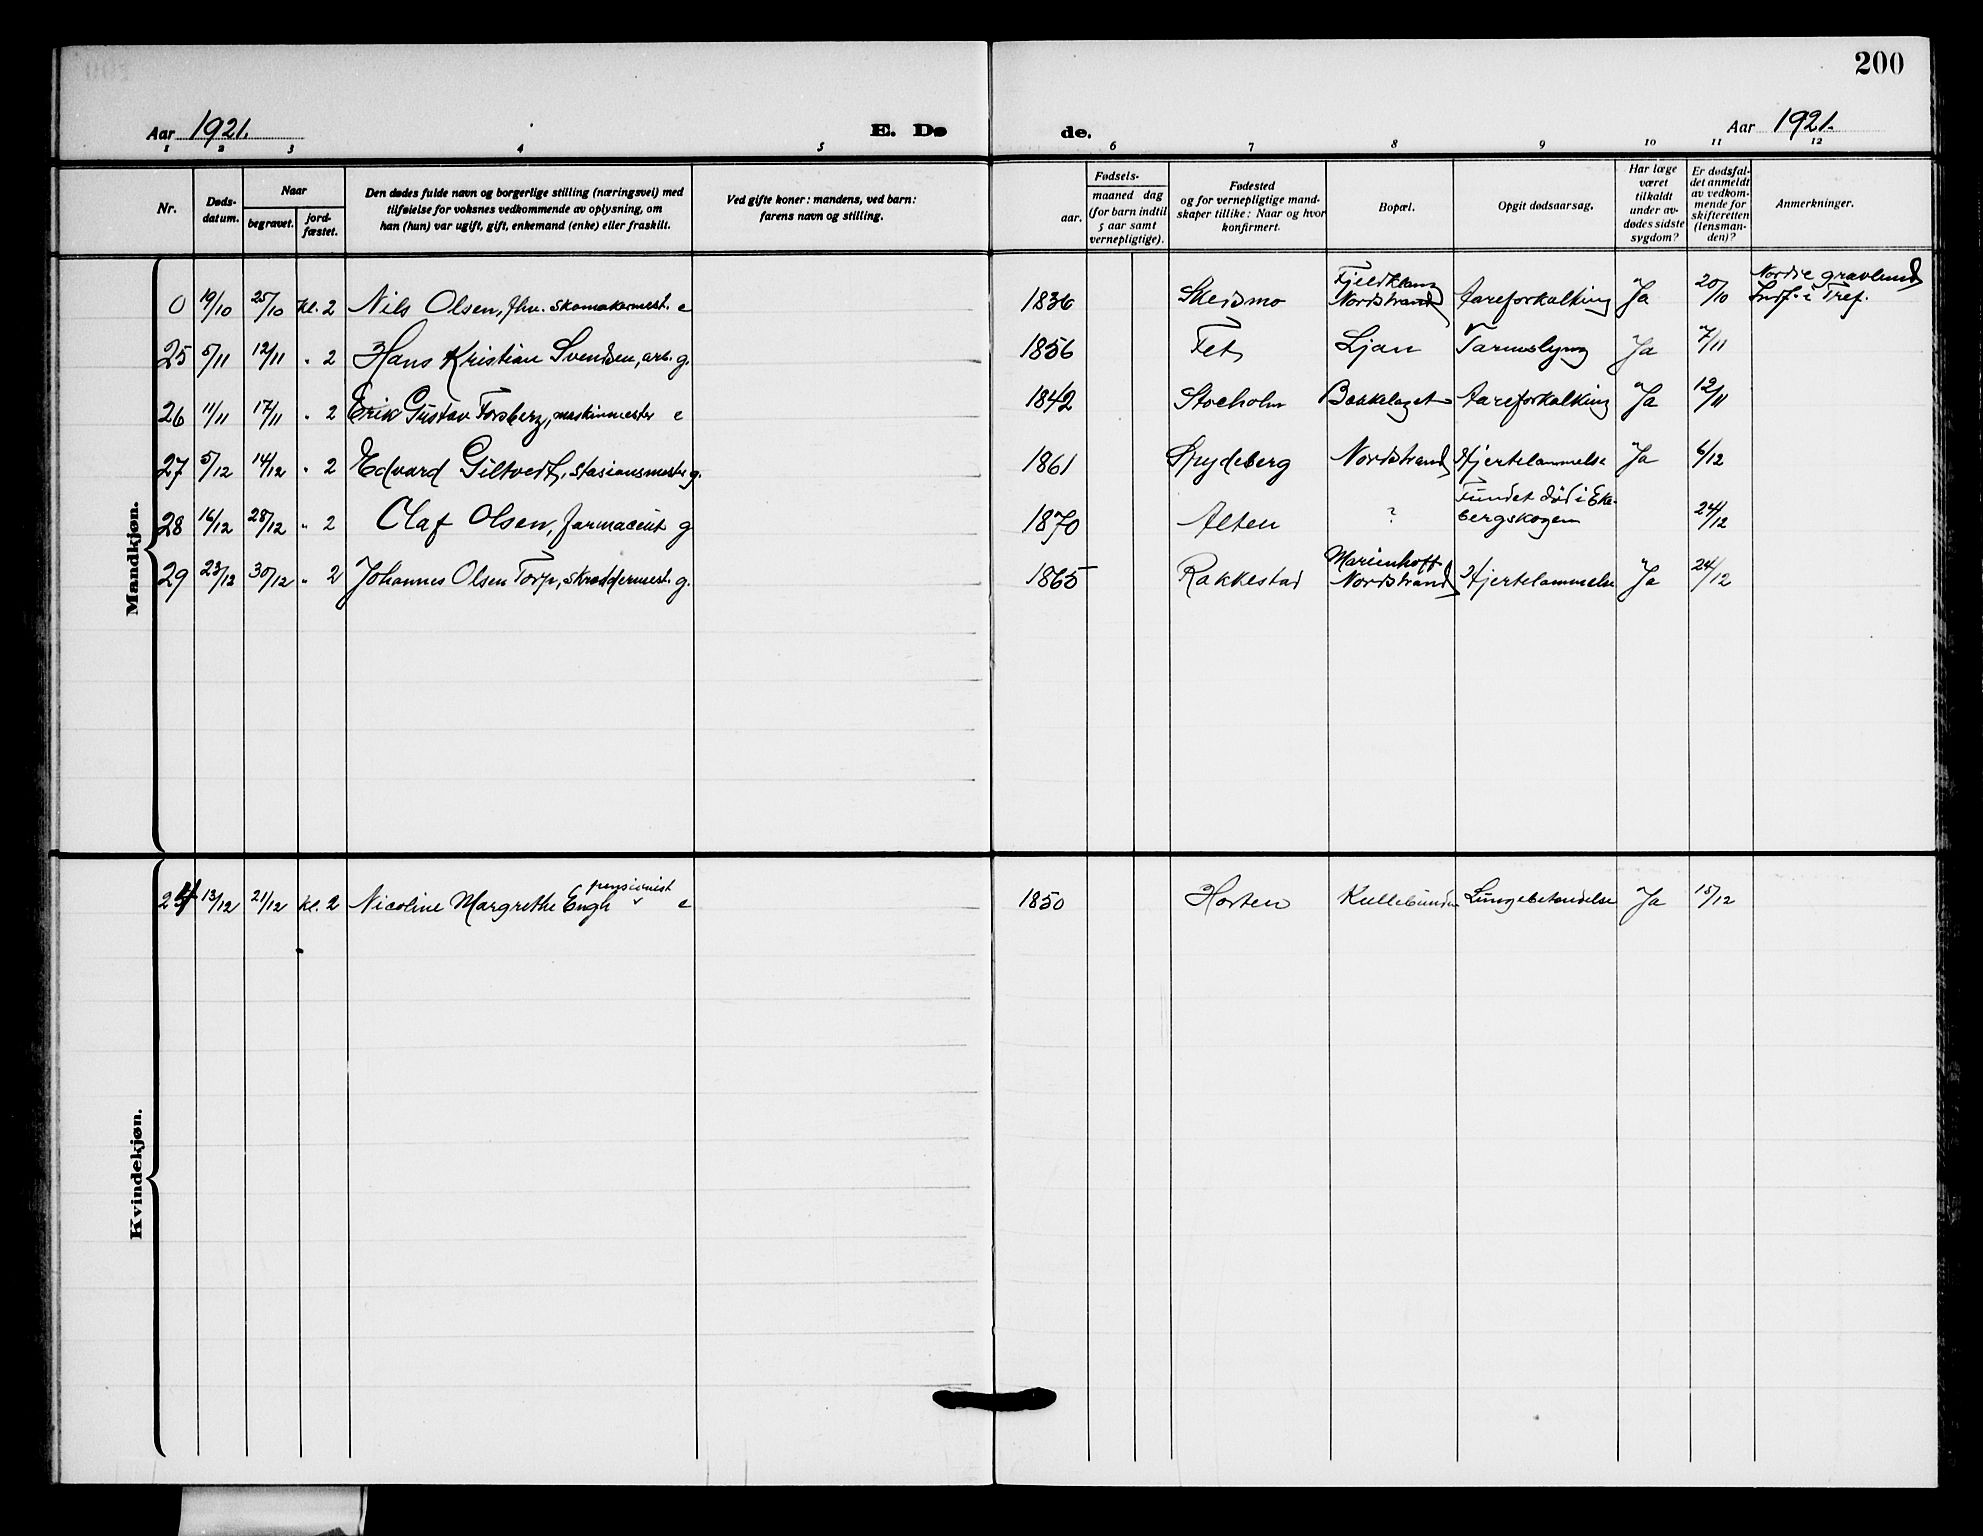 200
Aar 1921. E. Dø de. Aar 1921.
1 2 3 4 5 6 7 8 9 10 11 12
Nr.
Døds-
datum.
Naar
begravet.
jord-
fæstet.
Den dødes fulde navn og borgerlige stilling (næringsvei) med
tilføielse for voksnes vedkommende av oplysning, om
han (hun) var ugift, gift, enkemand (enke) eller fraskilt.
Ved gifte koner: mandens, ved barn:
farens navn og stilling.
Fødsels-
aar.
maaned dag
(for barn indtil
5 aar samt
vernepligtige).
Fødested
og for vernepligtige mand-
skaper tillike: Naar og hvor
konfirmert.
Bopæl.
Opgit dødsaarsag.
Har læge
været
tilkaldt
under av-
dødes sidste
sygdom?
Er dødsfal-
det anmeldt
av vedkom-
mende for
skifteretten
(lensman-
den)?
Anmerkninger.
Mandkjøn.
0 19/10 25/10 kl. 2 Nils Olsen, fhv. skomakermest. e 1836 Skedsmo Nordstrand Aareforkalkning Ja 20/10 Nordre gravlund
25 5/11 12/11 " 2 Hans Kristian Svendsen, arb. g. 1856 Fet Ljan Tarmslyng Ja 7/11
26 11/11 17/11 " 2 Erik Gustav Forsberg, maskinmester e 1842 Stocholm Bækkelaget Aareforkalking Ja 12/11
27 5/12 14/12 " 2 Edvard Giltvedt, stasionsmester g. 1861 Spydeberg Nordstrand Hjertelammelse Ja 6/12
28 16/12 28/12 " 2 Olaf Olsen, farmaceut g 1870 Alten ? Fundet død i Eke-
bergskogen 24/12
29 23/12 30/12 " 2 Johannes Olsen Torp, skræddermest. g. 1865 Rakkestad Marienhoff
Nordstrand Hjertelammelse Ja 24/12
Kvindekjøn.
24 13/12 21/12 kl. 2 Nicoline Margrethe Engh pensionist e 1850 Horten Kullebunden Lungebetændelse Ja 15/12